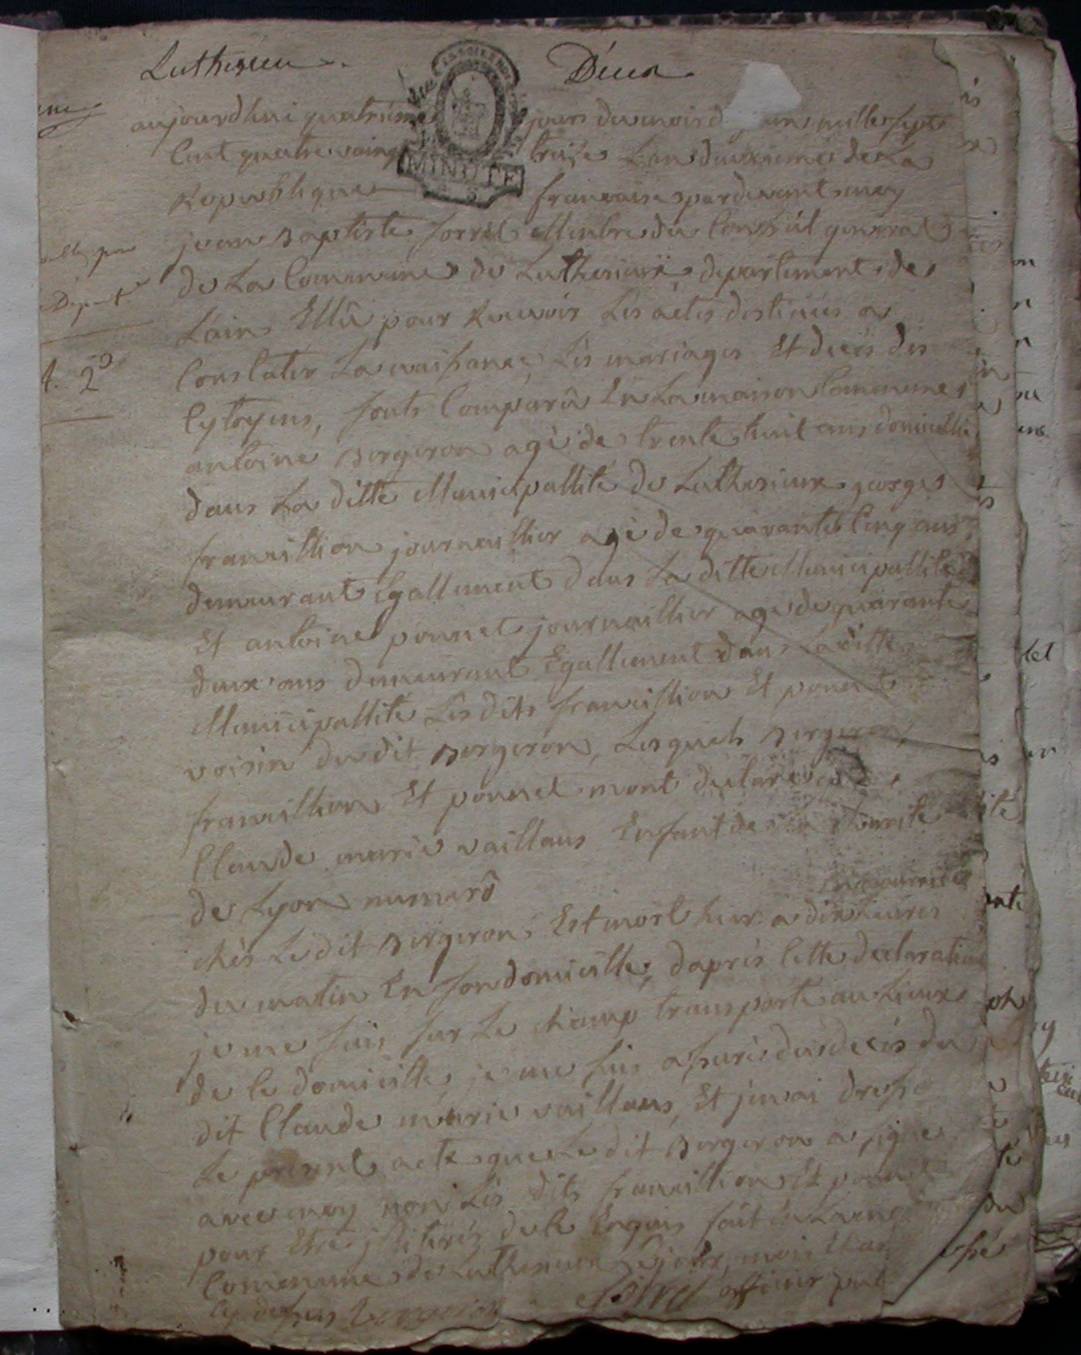 Luthezieu
Décé
aujourdhui quatrieme jours du mois d mille sept
Cent quatre vaing treize Lan deuxieme de La
MINUTE
Republique francaise pardevant moy
jean Baptiste forrel Membre du Conseil general
de La Commune de Luthezieux, departement de
Lain Ellû pour Recevoir Les actes destinées a
Constater La naissance, Les mariages Et decés des
Cytoyens, sonts Comparû En La maison Commune
antoine Bergeron agé de trente huit ans domicillié
dans La ditte Municipallité de Luthezieux georges
francillion journaillier agé de quarante Cinq ans
demeurant Egallement dans La ditte Municipallité
Et antoine ponnet journaillier agé de quarante
deux ans demeurant Egallement dans La ditte
Municipallité Les dits francillion Et ponnet
voisin du dit Bergeron, Lesquels Bergeron
francillion Et ponnet mont declaré que
Claude marie vaillans Enfant de La Charité
de Lyon numerô
chés Le dit Bergeron, Est mort hier a dix heures
du matin En son domicille, daprés Cette declaration
je me suis sur Le champ transporté au Lieux
de Ce domicille, je me suis assurés du decés du
dit Claude marie vaillans, Et jen ai dressé
Le present acte que Le dit Bergeron a signé
avec moy non Les dits francillion Et ponnet
pour Etre jliterés de Ce Enquis fait En La
Commune de Luthezieux Le jour, mois Et an
Cy dessus Bergeron forrel officier pub